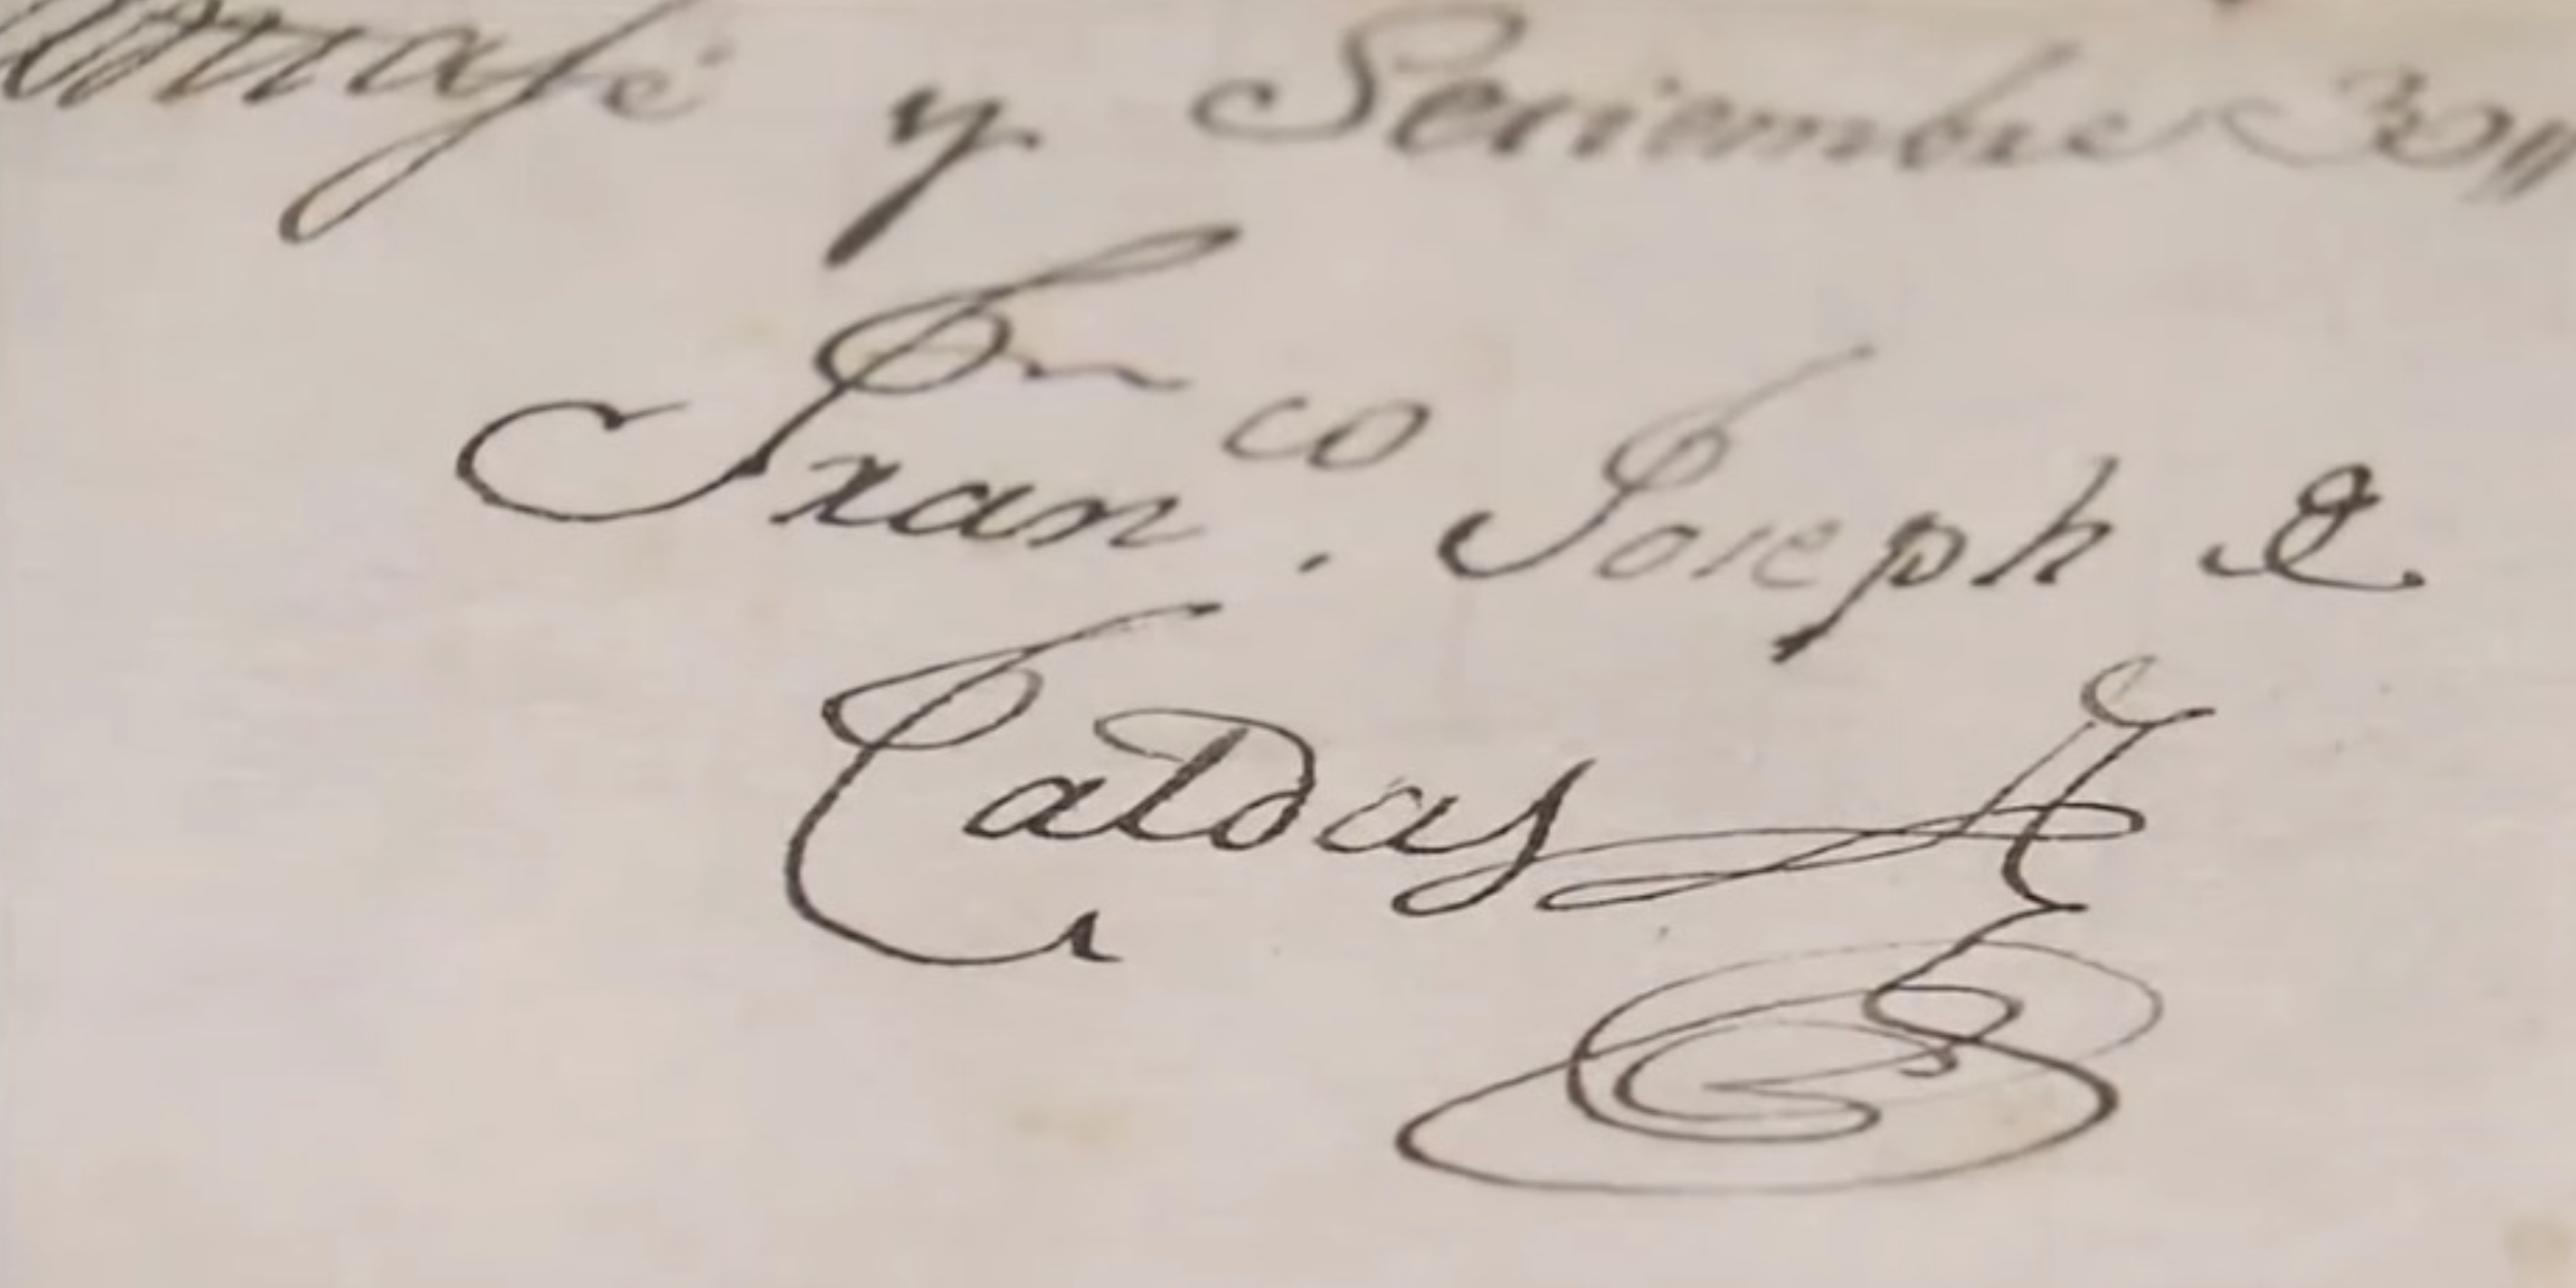 y Septiembre 30,,
Fran.co Joseph de
Caldas